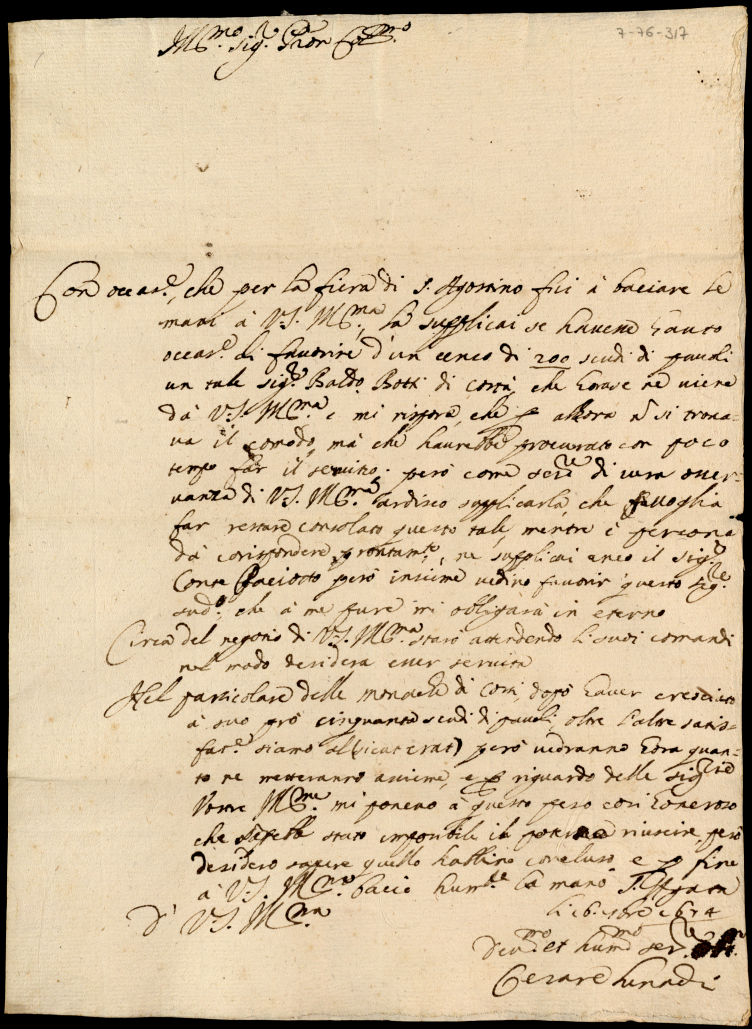 7-76-317
Ill.mo Sig.r Pron Col.mo
Con occas.e, che per la fiera di S. Agostino fui à baciare le
mani à V.S. Ill.ma, la supplicai se havesse hauto
occas.e di favorire d'un censo di 200 scudi di pauoli
un tale Sig.r Baldo Botti di costà, che horase ne viene
da V.S. Ill.ma e mi rispose, che p allora n si troua=
ua il comodo, mà che haurebbe procurato con poco
tempo far il seruitio; però come ser.re di uera osser=
uanza di V.S. Ill.ma ardisco supplicarla, che uoglia
far restare consolato questo tale, mentre è persona
da corispondere prontam.te, ne supplicai anco il Sig.r
Conte però insieme favorir questo Sig.re
sud.o che à me pure mi obligarà in eterno
Circa del negotio di V.S. Ill.ma starò attendendo li suoi comandi
nel modo desidera esser seruita
Nel particolare delle monache di costì, dopo hauer cresciuto
à suo prò cinquanta scudi di pauoli, oltre l'altre satis=
fat.e siamo all(sicut erat) però uedranno hora quan=
to ne metteranno assieme, e p riguardo delle Sig.rie
Vostre Ill.me mi posero à questo peso così honeroso
che sarebbe stato imposibile il poterne riuscire, però
desidero sapere quello habbino concluso, e p fine
à V.S. Ill.ma bacio hum.te la mano S. Agata
li 6. 1674
D' V.S. Ill.ma
Deu.mo et hum.mo ser.re
Cesare